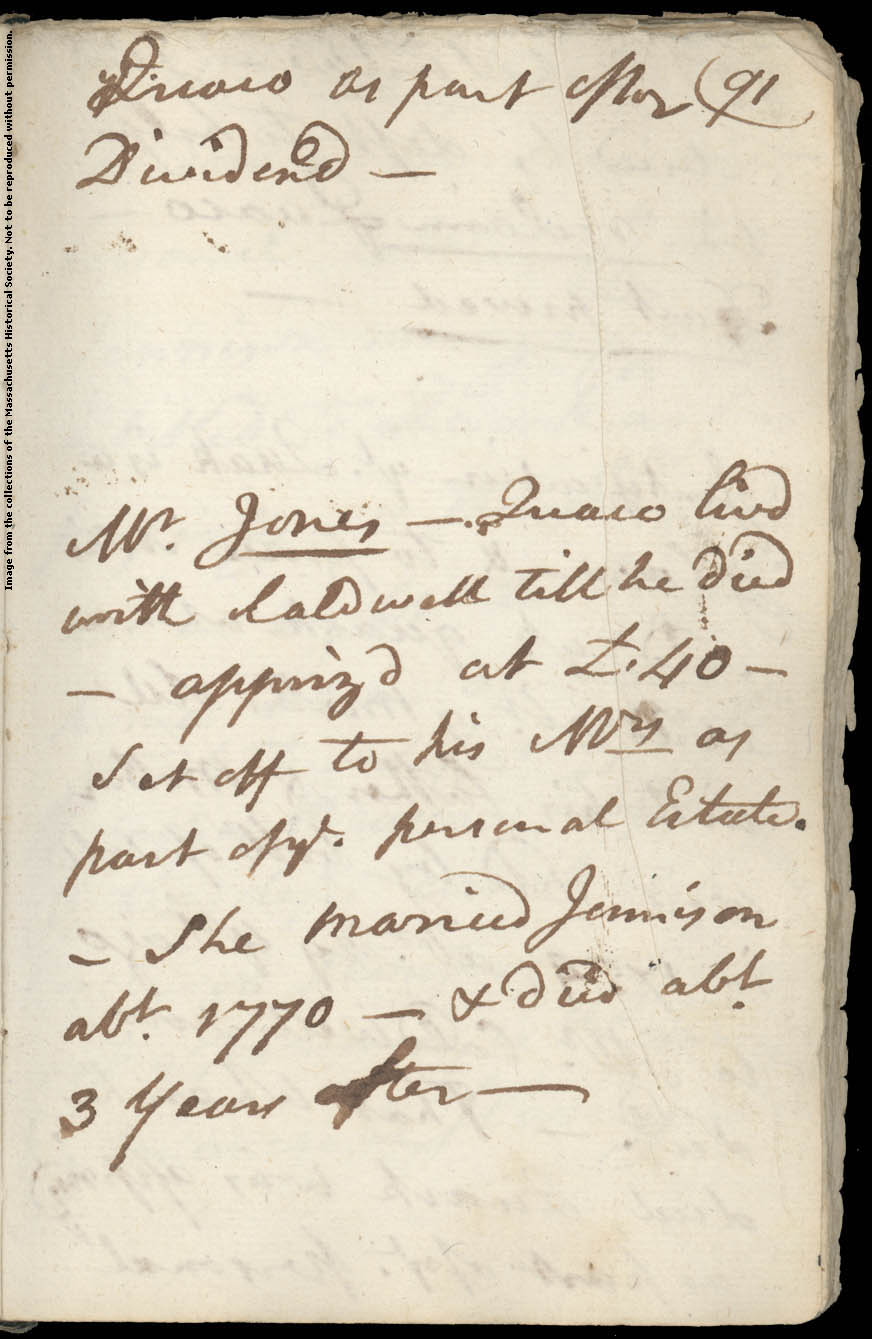 Quaco as part of her (91
Dividend —
Mr. Jones — Quaco livd
with Caldwell till he died
— apprizd at £.40 —
set off to his Mrs as
part of ye. personal Estate.
— She married Jennison
abt. 1770 — & died abt.
3 Years after —
Image from the collections of the Massachusetts Historical Society. Not to be reproduced without permission.